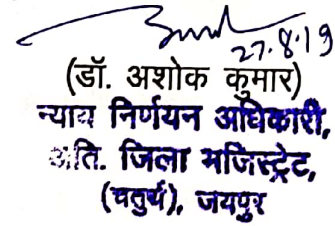 27.8.19
(डॉ. अशोक कुमार)
न्याय निर्णयन अधिकारी,
अति. जिला मजिस्ट्रेट,
(चतुर्थ), जयपुर